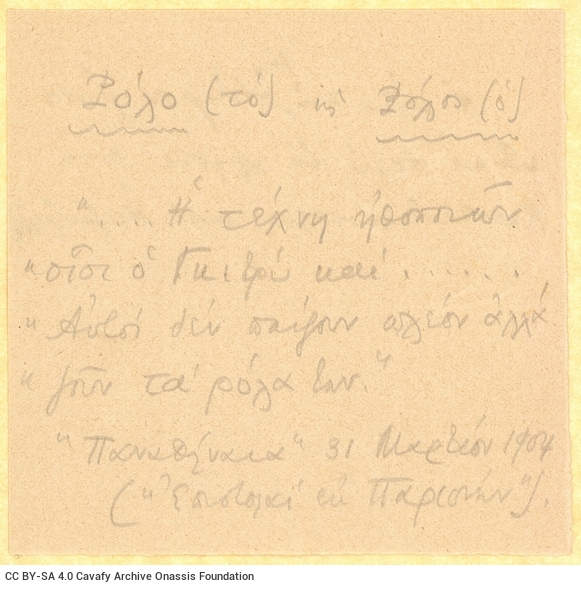 Ρόλο (τό) κ' Ρόλος (ὁ)
"....Ἡ τέχνη ἠθοποιῶν
"οἷοι ὁ Γκιτρύ καί ......
"Αὐτοί δέν παίζουν πλέον ἀλλά
"ζοῦν τά ρόλα των."
"Παναθήναια" 31 Μαρτίου 1904
("Ἐπιστολαί ἐκ Παρισίων").
CC BY-SA 4.0 Cavafy Archive Onassis Foundation